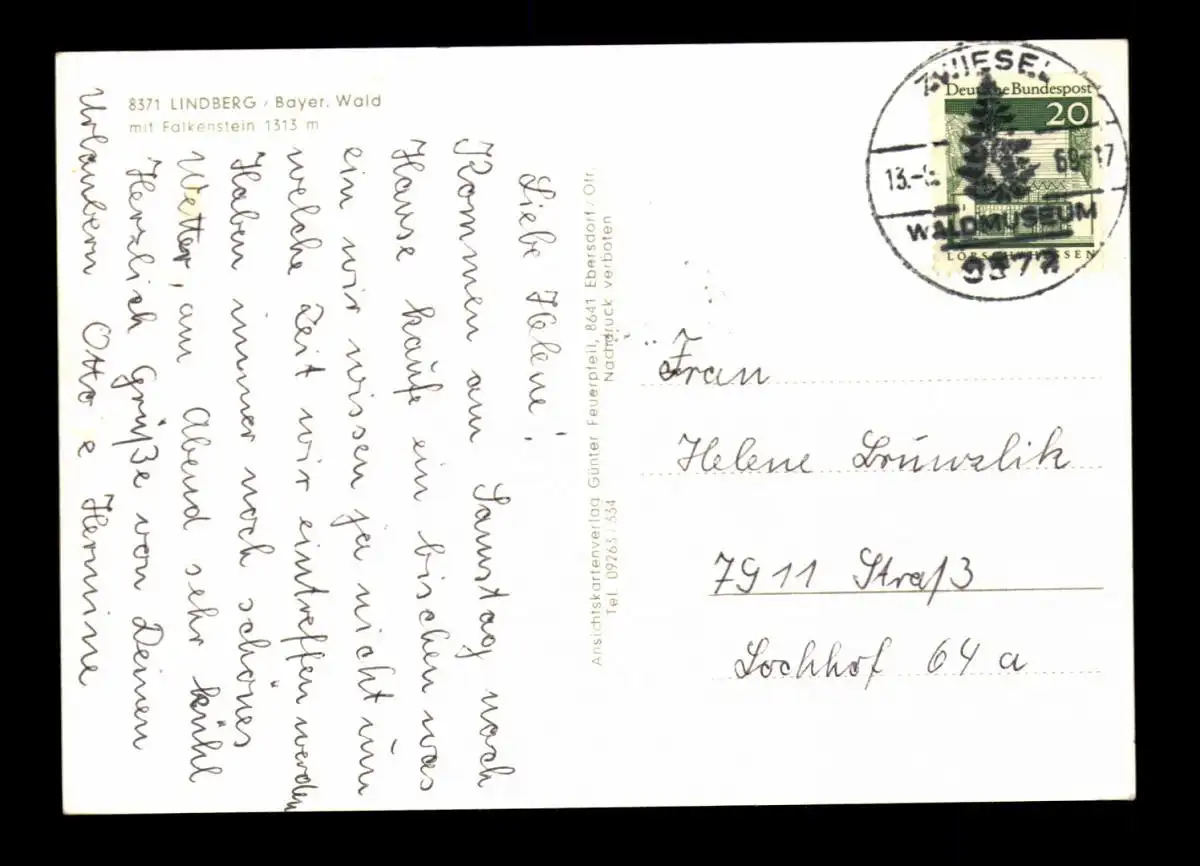 8371 LINDBERG / Bayer. Wald
mit Falkenstein 1313 m
Liebe Helene!
Kommen am Samstag noch
Hause kaufe ein bischen was
ein wir wissen ja nicht um
welche Zeit wir eintreffen werden
Haben immer noch schönes
Wetter, am Abend sehr kühl
Herzlich Grüße von Deinen
Urlaubern Otto e Hermine
Ansichtskartenverlag Günter Feuerpfeil, 8641 Ebersdorf / Ofr.
Tel. 09263 / 334 Nachdruck verboten
ZWIESEL
Deutsche Bundespost
20
13.-
68-17
WALDMUSEUM
LORSCH / HESSEN
Frau
Helene
7911 Straß
Lochhof 64 a